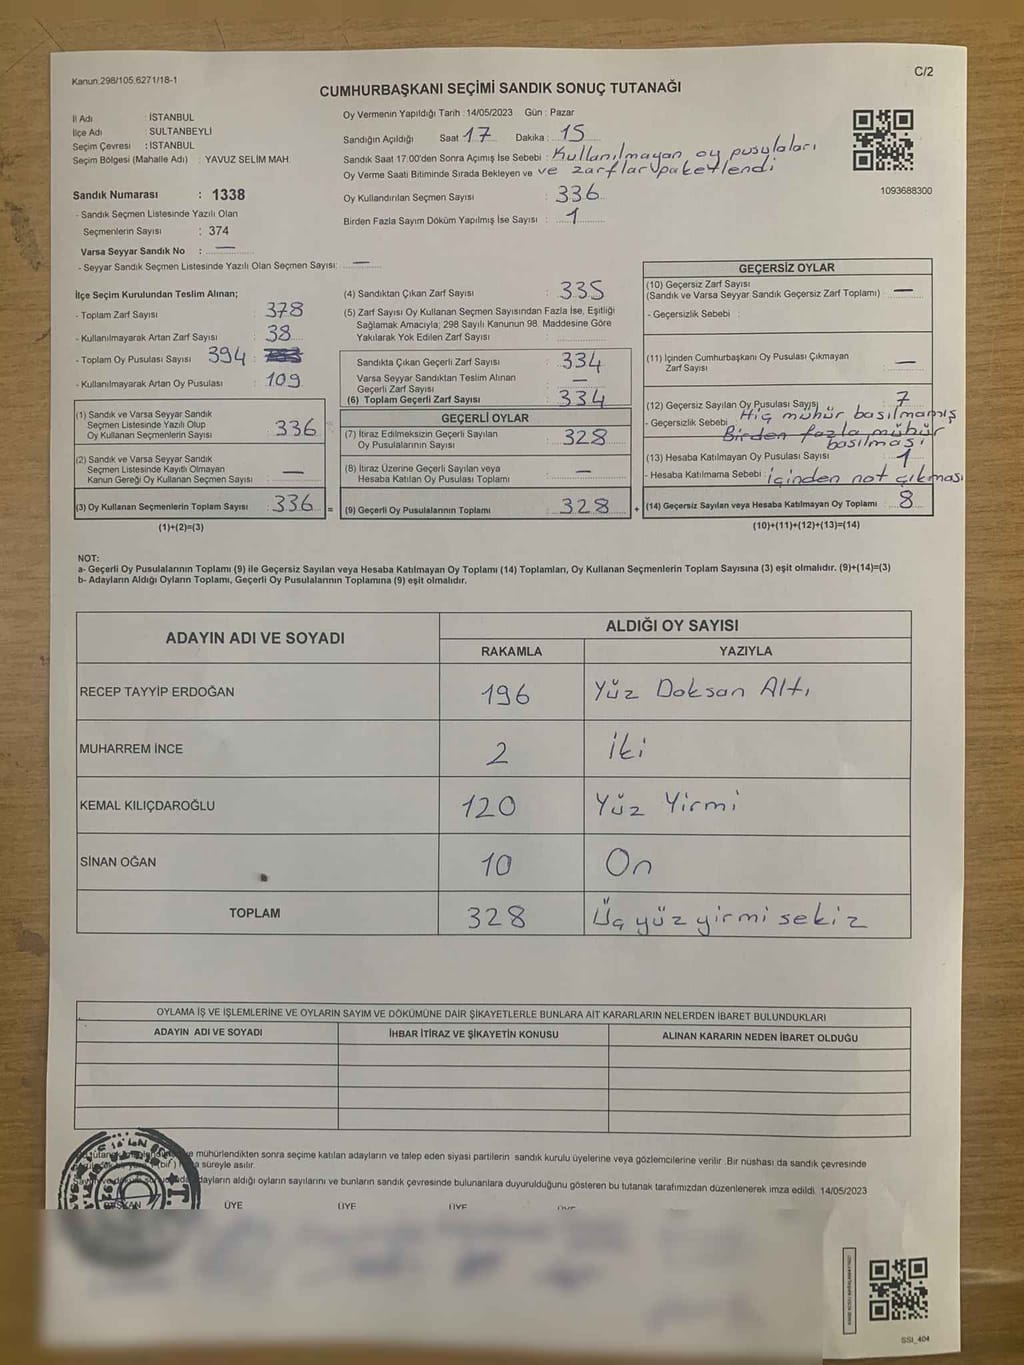 Kanun:298/105,6271/18-1
C/2
CUMHURBAŞKANI SEÇİMİ SANDIK SONUÇ TUTANAĞI
İl Adı : İSTANBUL
İlçe Adı : SULTANBEYLİ
Seçim Çevresi : İSTANBUL
Seçim Bölgesi (Mahalle Adı) : YAVUZ SELİM MAH.
Sandık Numarası : 1338
- Sandık Seçmen Listesinde Yazılı Olan
Seçmenlerin Sayısı : 374
Varsa Seyyar Sandık No : —
- Seyyar Sandık Seçmen Listesinde Yazılı Olan Seçmen Sayısı: —
Oy Vermenin Yapıldığı Tarih : 14/05/2023 Gün : Pazar
Sandığın Açıldığı Saat 17 Dakika : 15
Sandık Saat 17.00'den Sonra Açımış İse Sebebi : Kullanılmayan oy pusulaları
Oy Verme Saati Bitiminde Sırada Bekleyen ve ve zarflar paketlendi
Oy Kullandırılan Seçmen Sayısı : 336
Birden Fazla Sayım Döküm Yapılmış İse Sayısı : 1
1093688300
İlçe Seçim Kurulundan Teslim Alınan;
- Toplam Zarf Sayısı : 378
- Kullanılmayarak Artan Zarf Sayısı : 38
- Toplam Oy Pusulası Sayısı 394 :
- Kullanılmayarak Artan Oy Pusulası : 109
(1) Sandık ve Varsa Seyyar Sandık
Seçmen Listesinde Yazılı Olup
Oy Kullanan Seçmenlerin Sayısı : 336
(2) Sandık ve Varsa Seyyar Sandık
Seçmen Listesinde Kayıtlı Olmayan
Kanun Gereği Oy Kullanan Seçmen Sayısı : —
(3) Oy Kullanan Seçmenlerin Toplam Sayısı : 336 =
(1)+(2)=(3)
(4) Sandıktan Çıkan Zarf Sayısı : 335
(5) Zarf Sayısı Oy Kullanan Seçmen Sayısından Fazla İse, Eşitliği
Sağlamak Amacıyla; 298 Sayılı Kanunun 98. Maddesine Göre
Yakılarak Yok Edilen Zarf Sayısı :
Sandıkta Çıkan Geçerli Zarf Sayısı : 334
Varsa Seyyar Sandıktan Teslim Alınan
Geçerli Zarf Sayısı : —
(6) Toplam Geçerli Zarf Sayısı : 334
GEÇERLİ OYLAR
(7) İtiraz Edilmeksizin Geçerli Sayılan
Oy Pusulalarının Sayısı : 328
(8) İtiraz Üzerine Geçerli Sayılan veya
Hesaba Katılan Oy Pusulası Toplamı : —
(9) Gerçerli Oy Pusulalarının Toplamı : 328 +
GEÇERSİZ OYLAR
(10) Geçersiz Zarf Sayısı
(Sandık ve Varsa Seyyar Sandık Geçersiz Zarf Toplamı) : —
- Geçersizlik Sebebi :
(11) İçinden Cumhurbaşkanı Oy Pusulası Çıkmayan
Zarf Sayısı : —
(12) Geçersiz Sayılan Oy Pusulası Sayısı : 7
- Geçersizlik Sebebi : Hiç mühür basılmamış
Birden fazla mühür
basılması
(13) Hesaba Katılmayan Oy Pusulası Sayısı : 1
- Hesaba Katılmama Sebebi : İçinden not çıkması
(14) Geçersiz Sayılan veya Hesaba Katılmayan Oy Toplamı : 8
(10)+(11)+(12)+(13)=(14)
NOT:
a- Geçerli Oy Pusulalarının Toplamı (9) ile Geçersiz Sayılan veya Hesaba Katılmayan Oy Toplamı (14) Toplamları, Oy Kullanan Seçmenlerin Toplam Sayısına (3) eşit olmalıdır. (9)+(14)=(3)
b- Adayların Aldığı Oyların Toplamı, Geçerli Oy Pusulalarının Toplamına (9) eşit olmalıdır.
ADAYIN ADI VE SOYADI
ALDIĞI OY SAYISI
RAKAMLA YAZIYLA
RECEP TAYYİP ERDOĞAN 196 Yüz Doksan Altı
MUHARREM İNCE 2 İki
KEMAL KILIÇDAROĞLU 120 Yüz Yirmi
SİNAN OĞAN 10 On
TOPLAM 328 Üç yüz yirmi sekiz
OYLAMA İŞ VE İŞLEMLERİNE VE OYLARIN SAYIM VE DÖKÜMÜNE DAİR ŞİKAYETLERLE BUNLARA AİT KARARLARIN NELERDEN İBARET BULUNDUKLARI
ADAYIN ADI VE SOYADI İHBAR İTİRAZ VE ŞİKAYETİN KONUSU ALINAN KARARIN NEDEN İBARET OLDUĞU
mühürlendikten sonra seçime katılan adayların ve talep eden siyasi partilerin sandık kurulu üyelerine veya gözlemcilerine verilir. Bir nüshası da sandık çevresinde
süreyle asılır.
adayların aldığı oyların sayılarını ve bunların sandık çevresinde bulunanlara duyurulduğunu gösteren bu tutanak tarafımızdan düzenlenerek imza edildi. 14/05/2023
BAŞKAN ÜYE ÜYE ÜYE
SSI_404